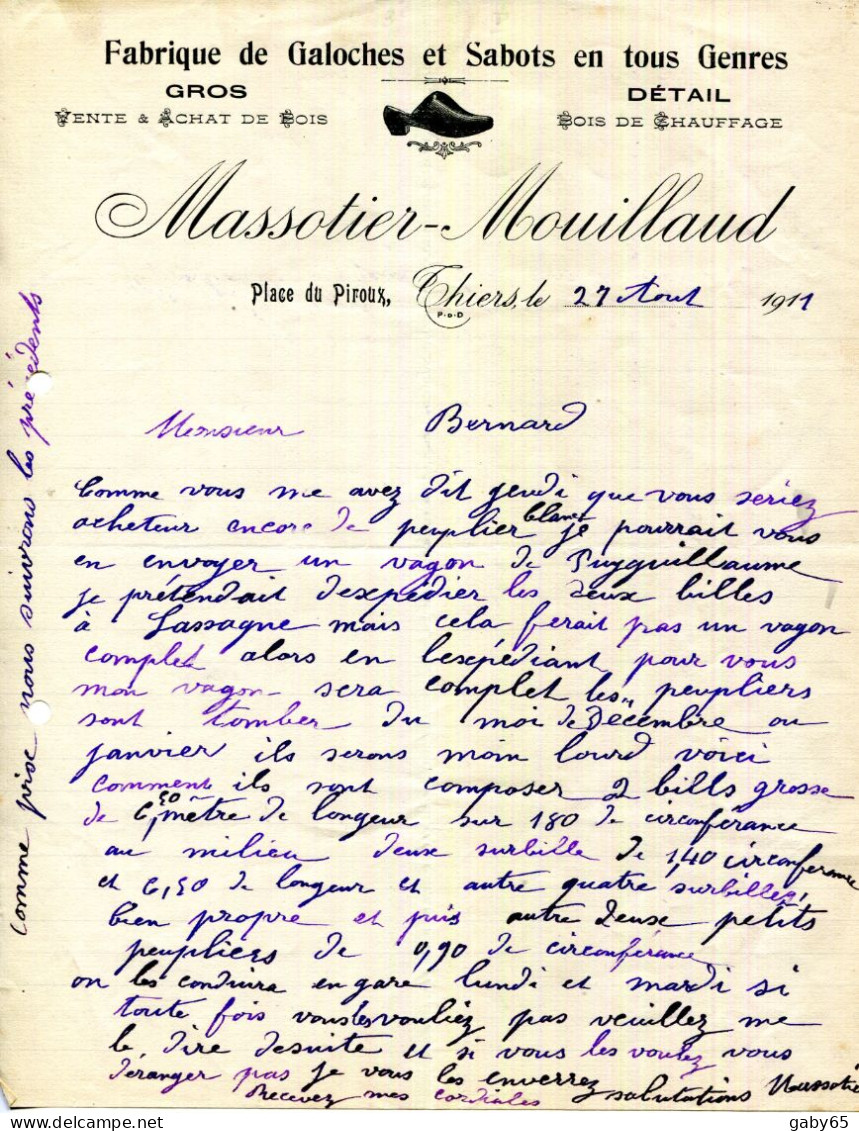 Fabrique de Galoches et Sabots en tous Genres
GROS
DÉTAIL
VENTE & ACHAT DE BOIS
BOIS DE CHAUFFAGE
Massotier-Mouillaud
Place du Piroux, Thiers, le 27 Aout 1911
P.o.D
Monsieur Bernard
Comme vous me avez dit jeudi que vous seriez
acheteur encore de peuplier blanc je pourrait vous
en envoyer un vagon de Puyguillaume
je prétendait dexpédier les deux billes
à Lassagne mais cela ferait pas un vagon
complet alors en lexpédiant pour vous
mon vagon sera complet les peupliers
sont tomber du moi de Décembre ou
janvier ils serons moin lourd voici
comment ils sont composer 2 bills grosse
de 6,50 mètre de longeur sur 180 de circonférance
au milieu deux surbille de 1,40 circonferance
et 6,50 de longeur et autre quatre surbilles,
bien propre et puis autre deuse petits
peupliers de 0,90 de circonférance
on les conduira en gare lundi et mardi si
toute fois vous les vouliez pas veuillez me
le dire desuite et si vous les voulez vous
déranger pas je vous les enverrez
Recevez mes cordiales salutations Massotier
comme prise nous suivrons les précédents
gaby65